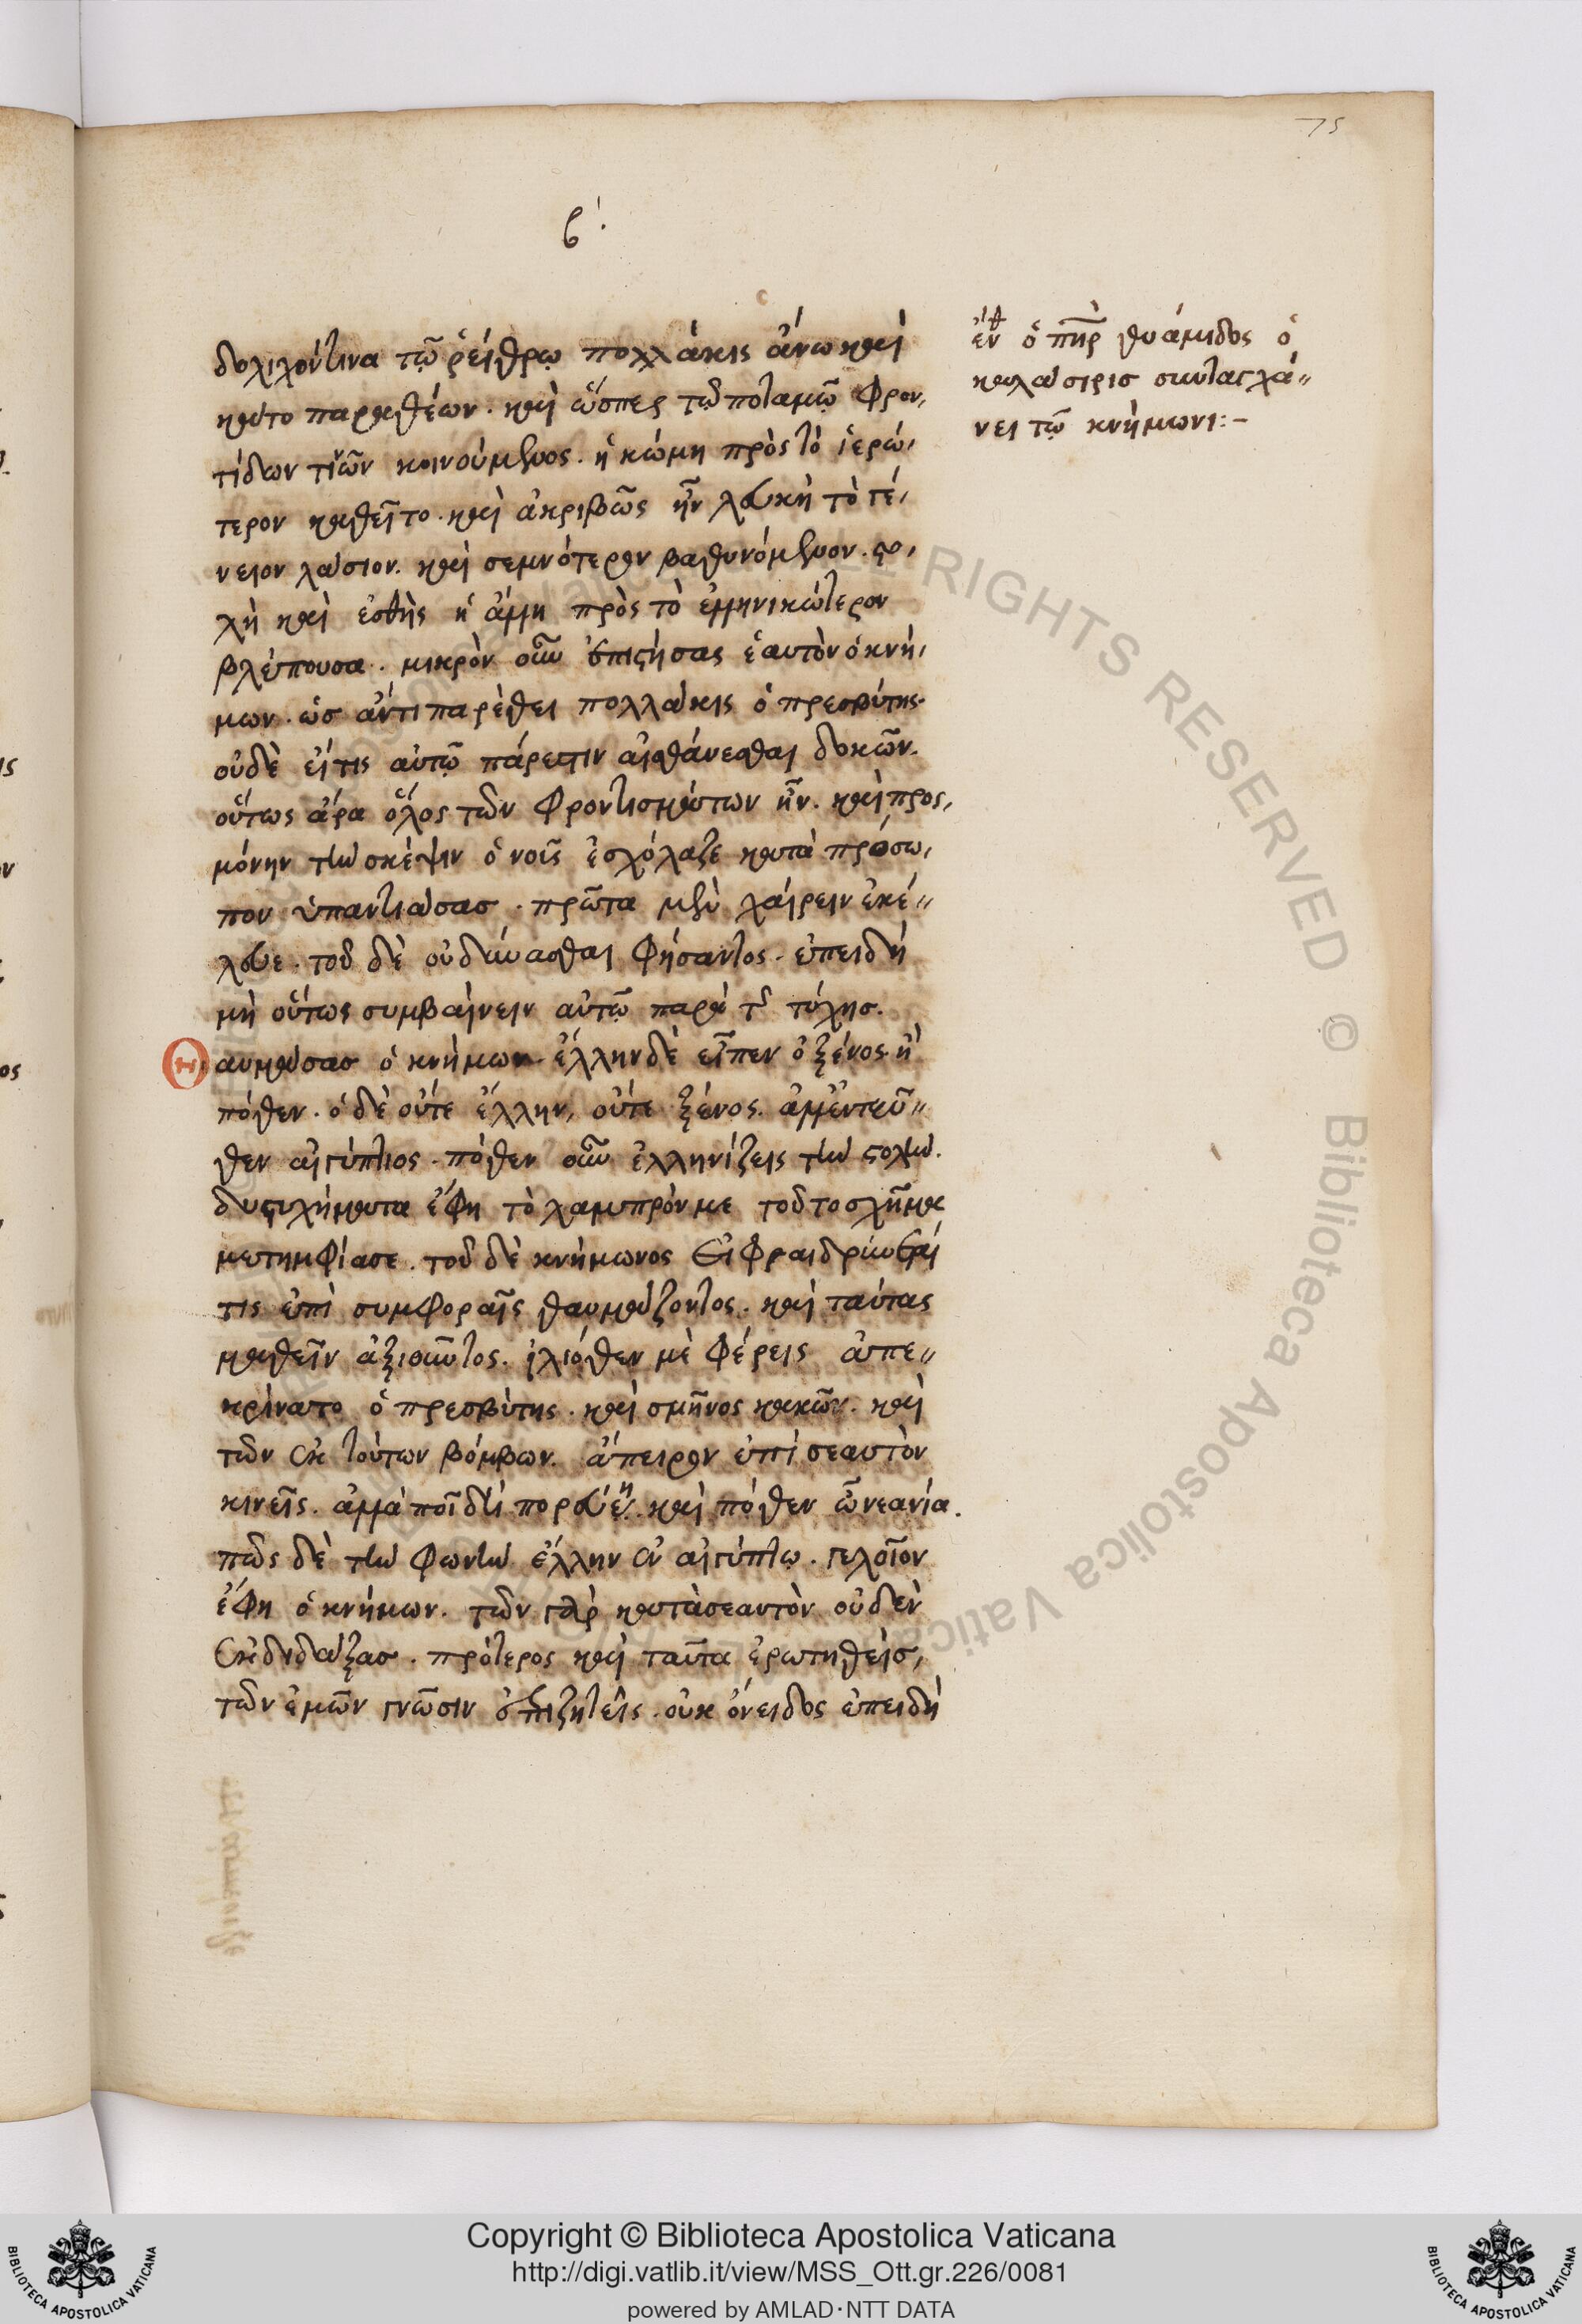 75
β΄.
δολιχεύοντινα τῷ ῥείθρῳ πολλάκις ἄνω καὶ
κάτω παραθέων. καὶ ὥσπερ τῷ ποταμῷ φρον,
τίδων τινῶν κοινούμενος. ἡ κόμη πρὸς τὸ ἱερώ,
τερον καθεῖτο. καὶ ἀκριβῶς ἦν λευκὴ τὸ γέ,
νειον λάσιον. καὶ σεμνότερον βαθυνόμενον. στο,
λὴ καὶ ἐσθὴς ἡ ἄλλη πρὸς τὸ ἑλληνικώτερον
βλέπουσα. μικρὸν οὖν ἐπιστήσας ἑαυτὸν ὁ κνή,
μων. ὡσ ἀντιπαρέθει πολλάκις ὁ πρεσβύτης.
οὐδὲ εἴ τις αὐτῷ πάρεστιν αἰσθάνεσθαι δοκῶν.
οὕτως ἄρα ὅλος τῶν φροντισμάτων ἦν. καὶ προς,
μόνην τὴν σκέψιν ὁ νοῦς ἐσχόλαζε κατὰ πρόσω,
πον ὑπαντιάσασ. πρῶτα μὲν χαίρειν ἐκέ,,
λευε. τοῦ δὲ οὐ δύνασθαι φήσαντος. ἐπειδὴ
μὴ οὕτως συμβαίνειν αὐτῷ παρὰ τῆς τύχησ.
Θαυμάσασ ὁ κνήμων. ἕλλην δὲ εἶπεν ὁ ξένος. ἢ
πόθεν. ὁ δὲ οὔτε ἕλλην, οὔτε ξένος. ἀλλ' ἐνταῦ,,
θεν αἰγύπτιος. πόθεν οὖν ἑλληνίζεις τὴν στολήν.
δυστυχήματα ἔφη τὸ λαμπρόν με τοῦτο σχῆμα
μετημφίασε. τοῦ δὲ κνήμωνος εἰ φαιδρύνεταί
τις ἐπὶ συμφοραῖς θαυμάζοντος. καὶ ταύτας
μαθεῖν ἀξιοῦντος. ἰλιόθεν μὲ φέρεις ἀπε,,
κρίνατο ὁ πρεσβύτης. καὶ σμῆνος κακῶν. καὶ
τῶν ἐκ τούτων βόμβων. ἄπειρον ἐπὶ σεαυτὸν
κινεῖς. ἀλλὰ ποῖ δὴ πορεύῃ. καὶ πόθεν ὦ νεανία.
πῶς δὲ τὴν φωνὴν ἕλλην ἐν αἰγύπτῳ. γελοῖον
ἔφη ὁ κνήμων. τῶν γὰρ κατὰ σεαυτὸν οὐδὲν
ἐκδιδάξασ. πρότερος καὶ ταῦτα ἐρωτηθείσ,
τῶν ἐμῶν γνῶσιν ἐπιζητεῖς. οὐκ ὄνειδος ἐπειδὴ
ὁ πηρ θυάμιδος ὁ
καλάσιρισ συντυγχά,,
νει τῷ κνήμωνι:-
RIGHTS RESERVED © Biblioteca Apostolica Vaticana
Copyright © Biblioteca Apostolica Vaticana
http://digi.vatlib.it/view/MSS_Ott.gr.226/0081
powered by AMLAD·NTT DATA
BIBLIOTECA APOSTOLICA VATICANA
BIBLIOTECA APOSTOLICA VATICANA